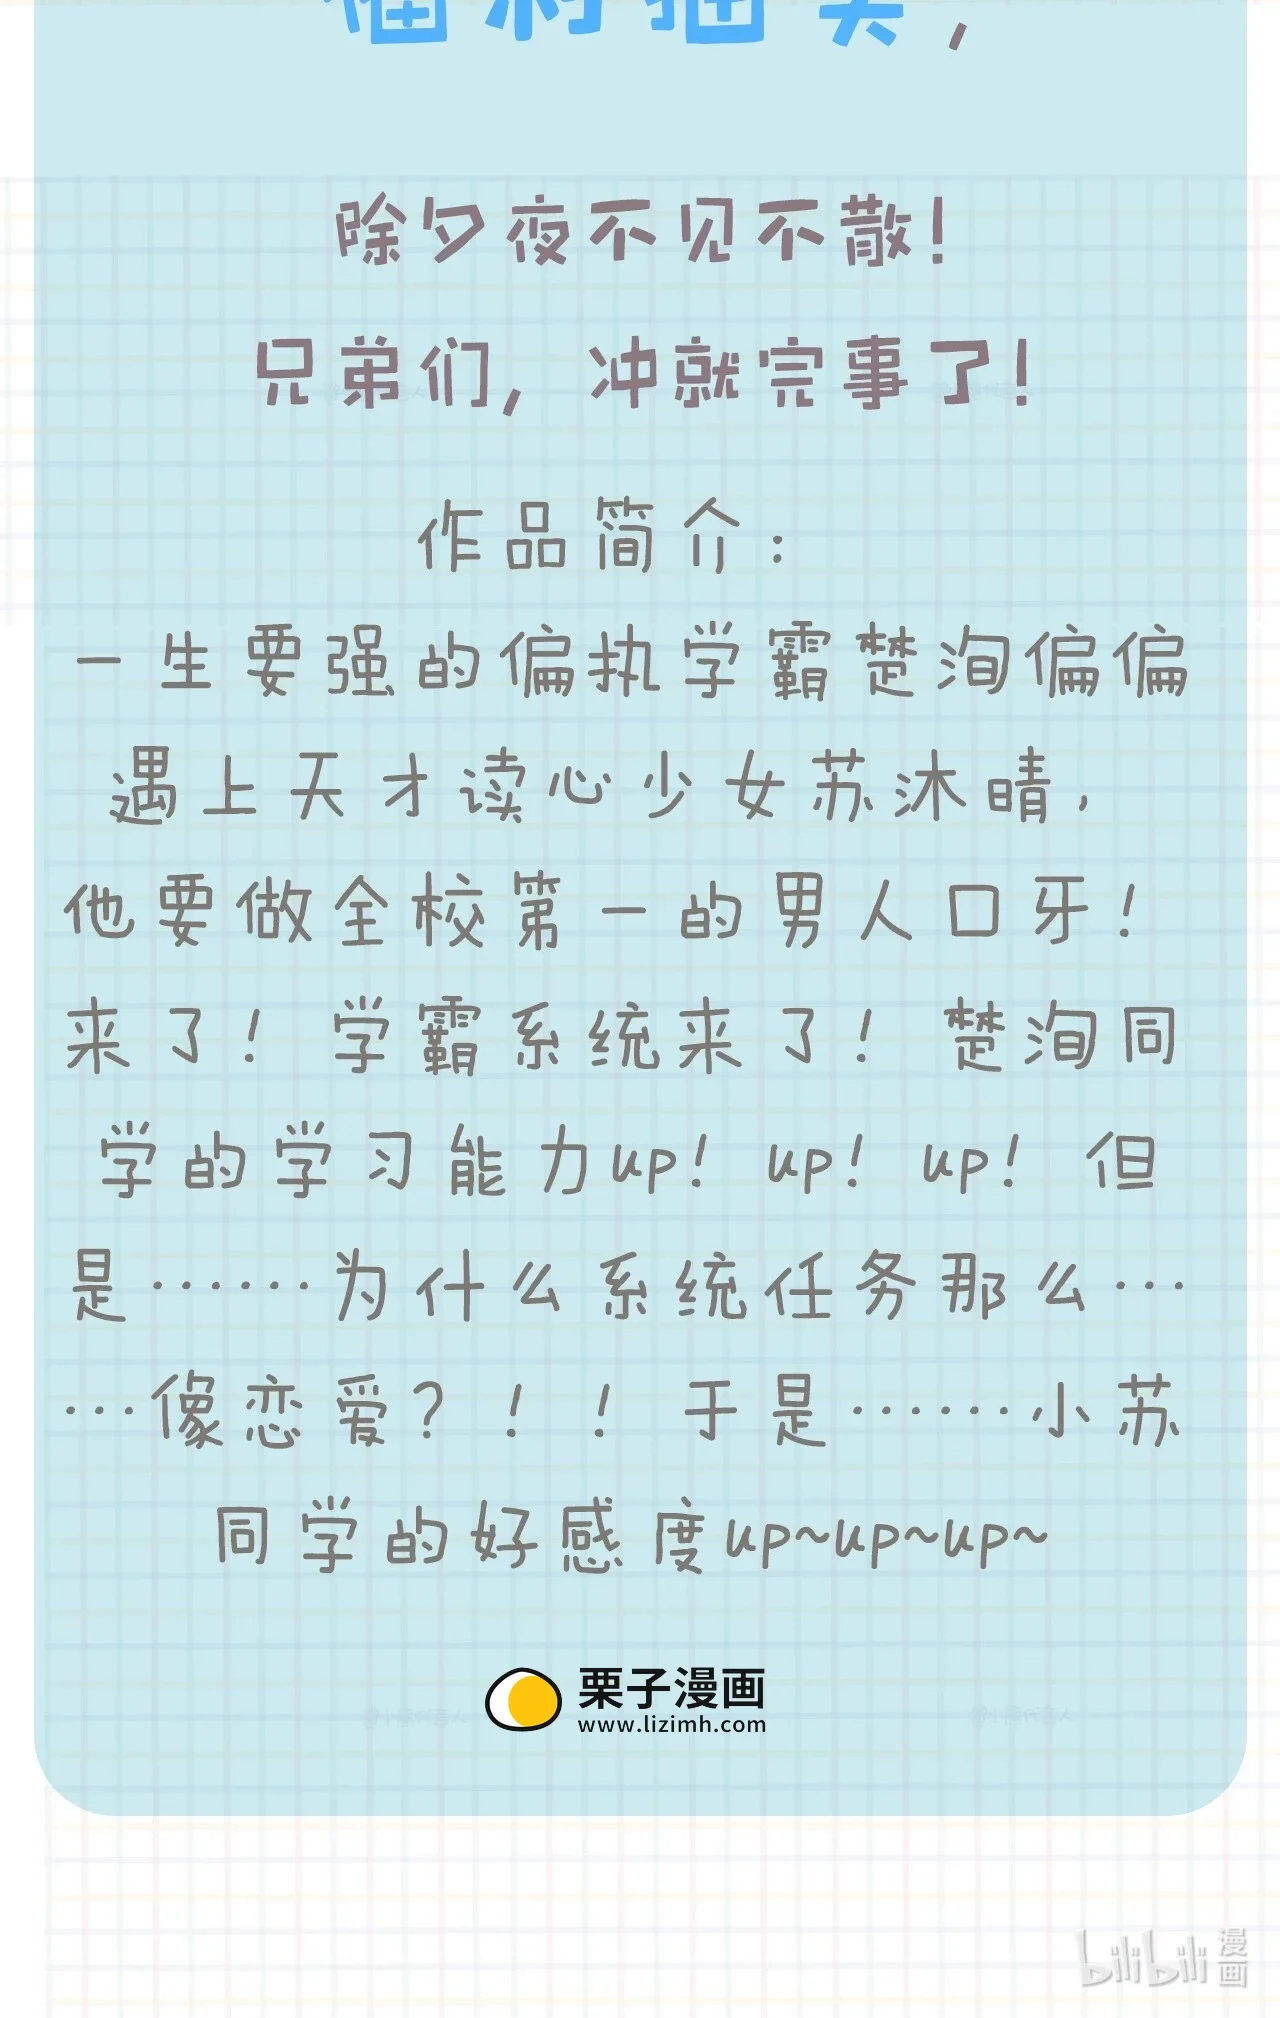 福利抽奖，
除夕夜不见不散！
兄弟们，冲就完事了！
作品简介：
一生要强的偏执学霸楚洵偏偏
遇上天才读心少女苏沐晴，
他要做全校第一的男人口牙！
来了！学霸系统来了！楚洵同
学的学习能力up！up！up！但
是……为什么系统任务那么…
…像恋爱？！！于是……小苏
同学的好感度up~up~up~
栗子漫画
www.lizimh.com
bilibili 漫画